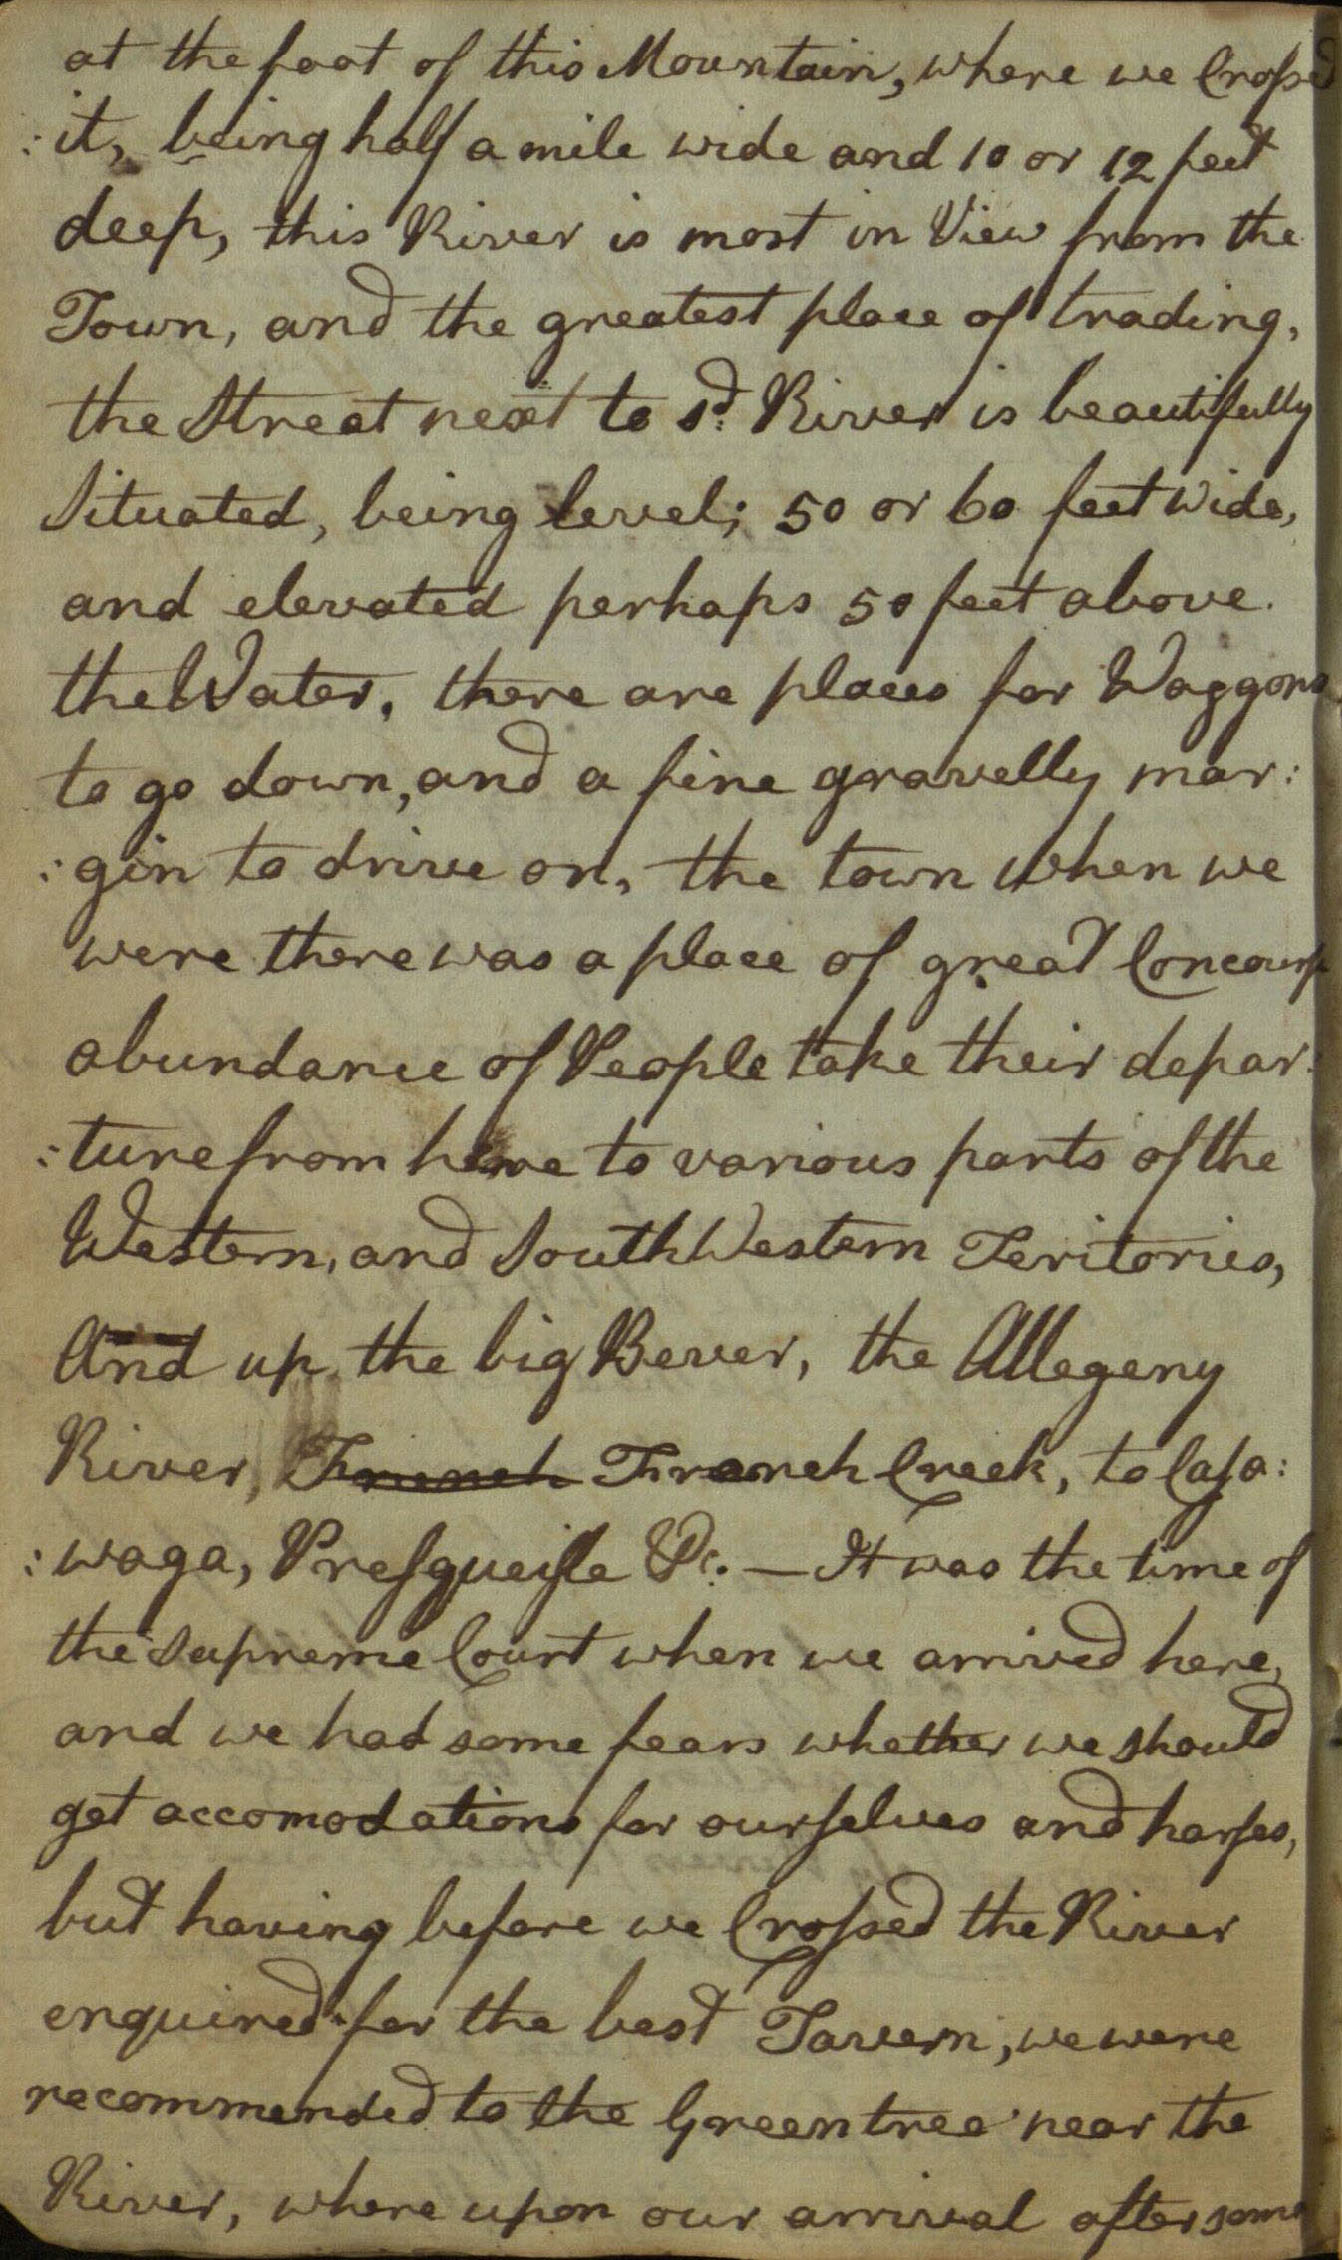 at the foot of this Mountain, where we Crossed
: it, being half a mile wide and 10 or 12 feet
deep, this River is most in View from the
Town, and the greatest place of trading,
the Street next to sd. River is beautifully
Situated, being level; 50 or 60 feet wide,
and elevated perhaps 50 feet above.
the Water, there are places for Waggons
to go down, and a fine gravelly mar:
: gin to drive on, the town when we
were there was a place of great Concourse
abundance of People take their depar:
: ture from here to various parts of the
Western, and South Western Teritories,
And up the big Bever, the Allegeny
River, French French Creek, to Casa:
: waga, Presqueisle &c. — It was the time of
the Supreme Court when we arrived here,
and we had some fears whether we should
get accomodations for ourselves and horses,
but having before we Crossed the River
enquired for the best Tavern, we were
recommended to the Greentree near the
River, where upon our arrival after some